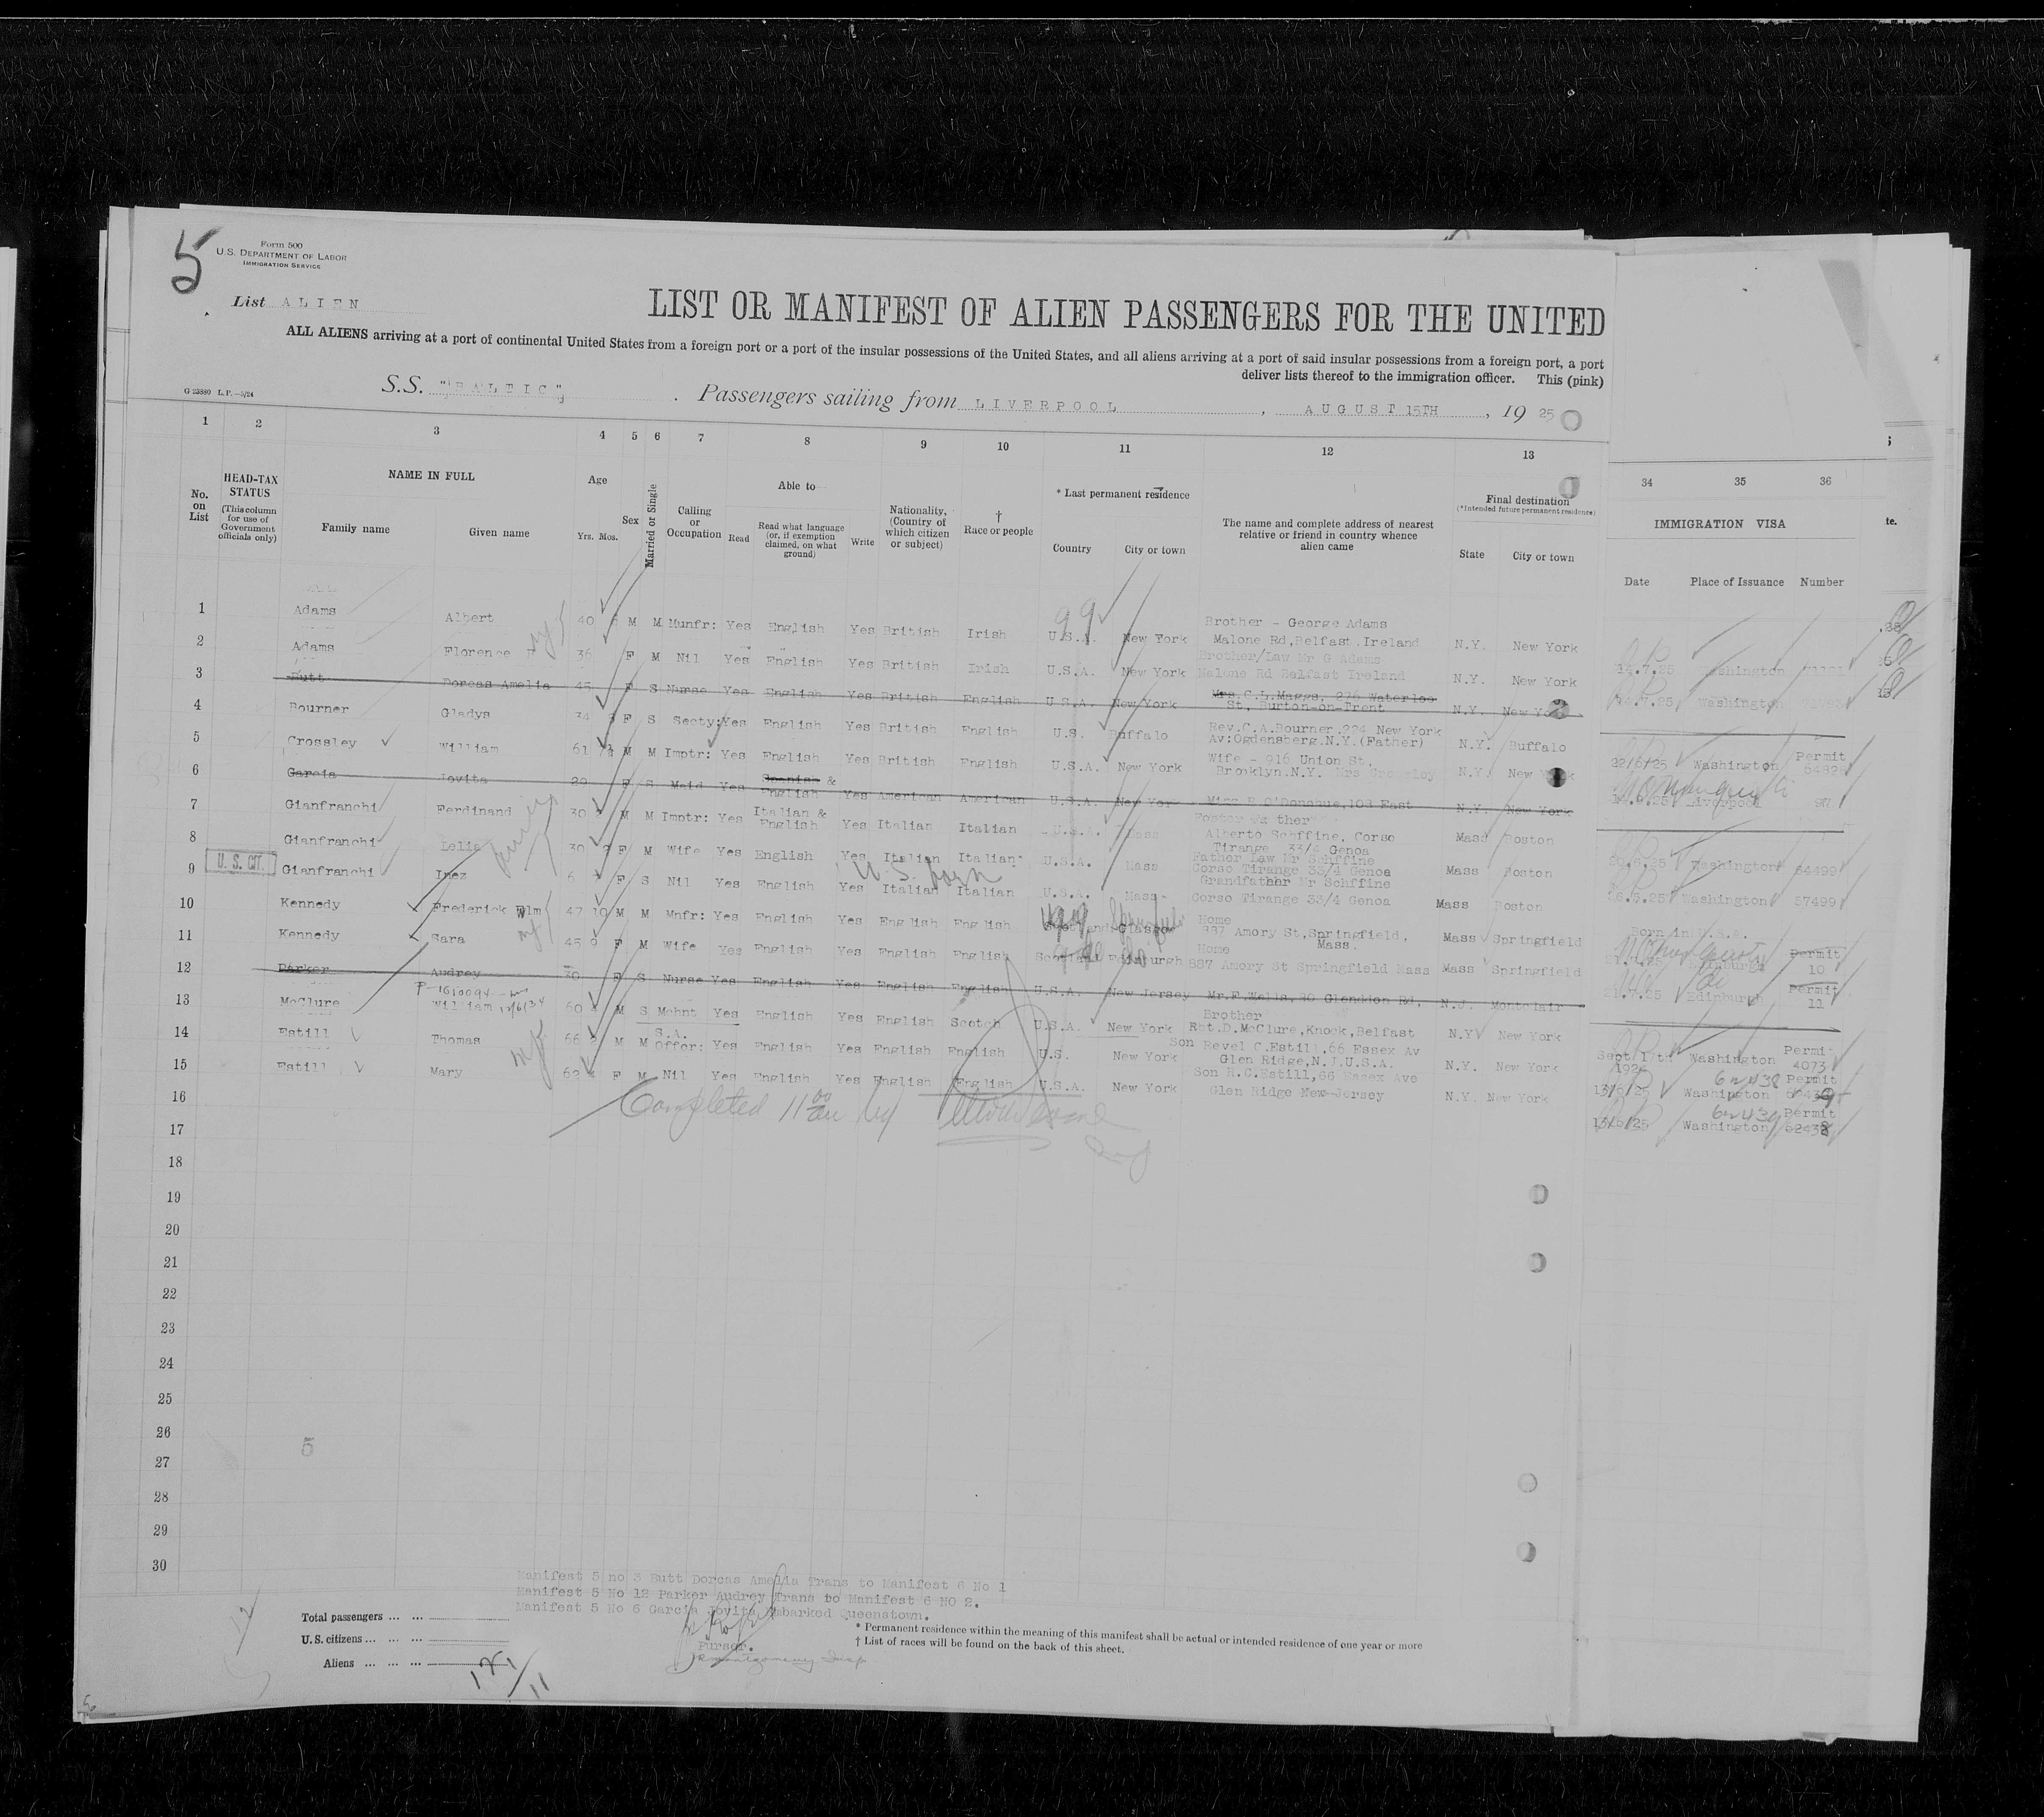 5
Form 500
U.S. DEPARTMENT OF LABOR
IMMIGRATION SERVICE
List ALIEN
LIST OR MANIFEST OF ALIEN PASSENGERS FOR THE UNITED
ALL ALIENS arriving at a port of continental United States from a foreign port or a port of the insular possessions of the United States, and all aliens arriving at a port of said insular possessions from a foreign port, a port
deliver lists thereof to the immigration officer. This (pink)
G 23880 L.P.—5/24
S.S. "BALTIC" Passengers sailing from LIVERPOOL, AUGUST 15TH, 19 25
1 2 3 4 5 6 7 8 9 10 11 12 13 34 35 36
No. on List
HEAD-TAX STATUS
(This column for use of Government officials only)
NAME IN FULL
Family name Given name
Age
Yrs. Mos.
Sex
Married or Single
Calling or Occupation
Able to
Read Read what language (or, if exemption claimed, on what ground) Write
Nationality, (Country of which citizen or subject)
† Race or people
* Last permanent residence
Country City or town
The name and complete address of nearest relative or friend in country whence alien came
Final destination
(*Intended future permanent residence)
State City or town
IMMIGRATION VISA
Date Place of Issuance Number
te.
1 Adams Albert 40 M M Munfr: Yes English Yes British Irish U.S.A. New York Brother - George Adams Malone Rd, Belfast. Ireland N.Y. New York
99
2 Adams Florence 36 F M Nil Yes English Yes British Irish U.S.A. New York Brother/Law Mr G Adams Malone Rd Belfast Ireland N.Y. New York
14.7.25 Washington
3 Butt Dorcas Amelia 45 F S Nurse Yes English Yes British English U.S.A. New York Mrs.C.L.Maggs, 276 Waterloo St, Burton-on-Trent N.Y. New York
14.7.25 Washington
4 Bourner Gladys 34 F S Secty: Yes English Yes British English U.S. Buffalo Rev.C.A.Bourner.224 New York Av:Ogdensberg.N.Y.(Father) N.Y. Buffalo
5 Crossley William 61 M M Imptr: Yes English Yes British English U.S.A. New York Wife - 916 Union St, Brooklyn.N.Y. Mrs Crossley N.Y. New York
22/6/25 Washington Permit
6 Garcia Jovita 29 F S Maid Yes Spanish & English Yes American American U.S.A. New York Miss E O'Donohue, 103 East N.Y. New York
Liverpool
7 Gianfranchi Ferdinand 30 M M Imptr: Yes Italian & English Yes Italian Italian U.S.A. Mass Alberto Schffine, Corso Tirange 33/4 Genoa Mass Boston
8 Gianfranchi Lelia 30 F M Wife Yes English Yes Italian Italian U.S.A. Mass Father Law Mr Schffine Corso Tirange 33/4 Genoa Mass Boston
Washington 64499
U. S. CIT.
U.S. born
9 Gianfranchi Inez 6 F S Nil Yes English Yes Italian Italian U.S.A. Mass Grandfather Mr Schffine Corso Tirange 33/4 Genoa Mass Boston
Washington 57499
10 Kennedy Frederick Wlm 47 10 M M Mnfr: Yes English Yes English English Scotland Glasgow Home 887 Amory St, Springfield, Mass. Mass Springfield
Born in U.S.A.
11 Kennedy Sara 45 9 F M Wife Yes English Yes English English Scotland Edinburgh Home 887 Amory St Springfield Mass Mass Springfield
Permit 10
12 Parker Audrey 30 F S Nurse Yes English Yes English English U.S.A. New Jersey Mr.F.Wells, 80 Glenddon Rd, N.J. Montclair
Edinburgh Permit 11
13 McClure William 60 M S Mchnt Yes English Yes English Scotch U.S.A. New York Brother Rbt.D.McClure, Knock, Belfast N.Y New York
14 Estill Thomas 66 M M S.A. Offcr: Yes English Yes English English U.S. New York Son Revel C.Estill, 66 Essex Av Glen Ridge, N.J.U.S.A. N.Y. New York
Sept 17th 1924 Washington Permit 4073
15 Estill Mary 62 F M Nil Yes English Yes English English U.S.A. New York Son R.C.Estill, 66 Essex Ave Glen Ridge New-Jersey N.Y. New York
13/6/25 Washington Permit
13/6/25 Washington Permit
16
Completed 11 00 am by
17
18
19
20
21
22
23
24
25
26
5
27
28
29
30
Manifest 5 no 3 Butt Dorcas Amelia Trans to Manifest 6 No 1
Manifest 5 No 12 Parker Audrey Trans to Manifest 6 NO 2.
Manifest 5 No 6 Garcia Jovita Embarked Queenstown.
Purser.
Total passengers ... ...
U.S. citizens ... ... ...
Aliens ... ... ...
* Permanent residence within the meaning of this manifest shall be actual or intended residence of one year or more
† List of races will be found on the back of this sheet.